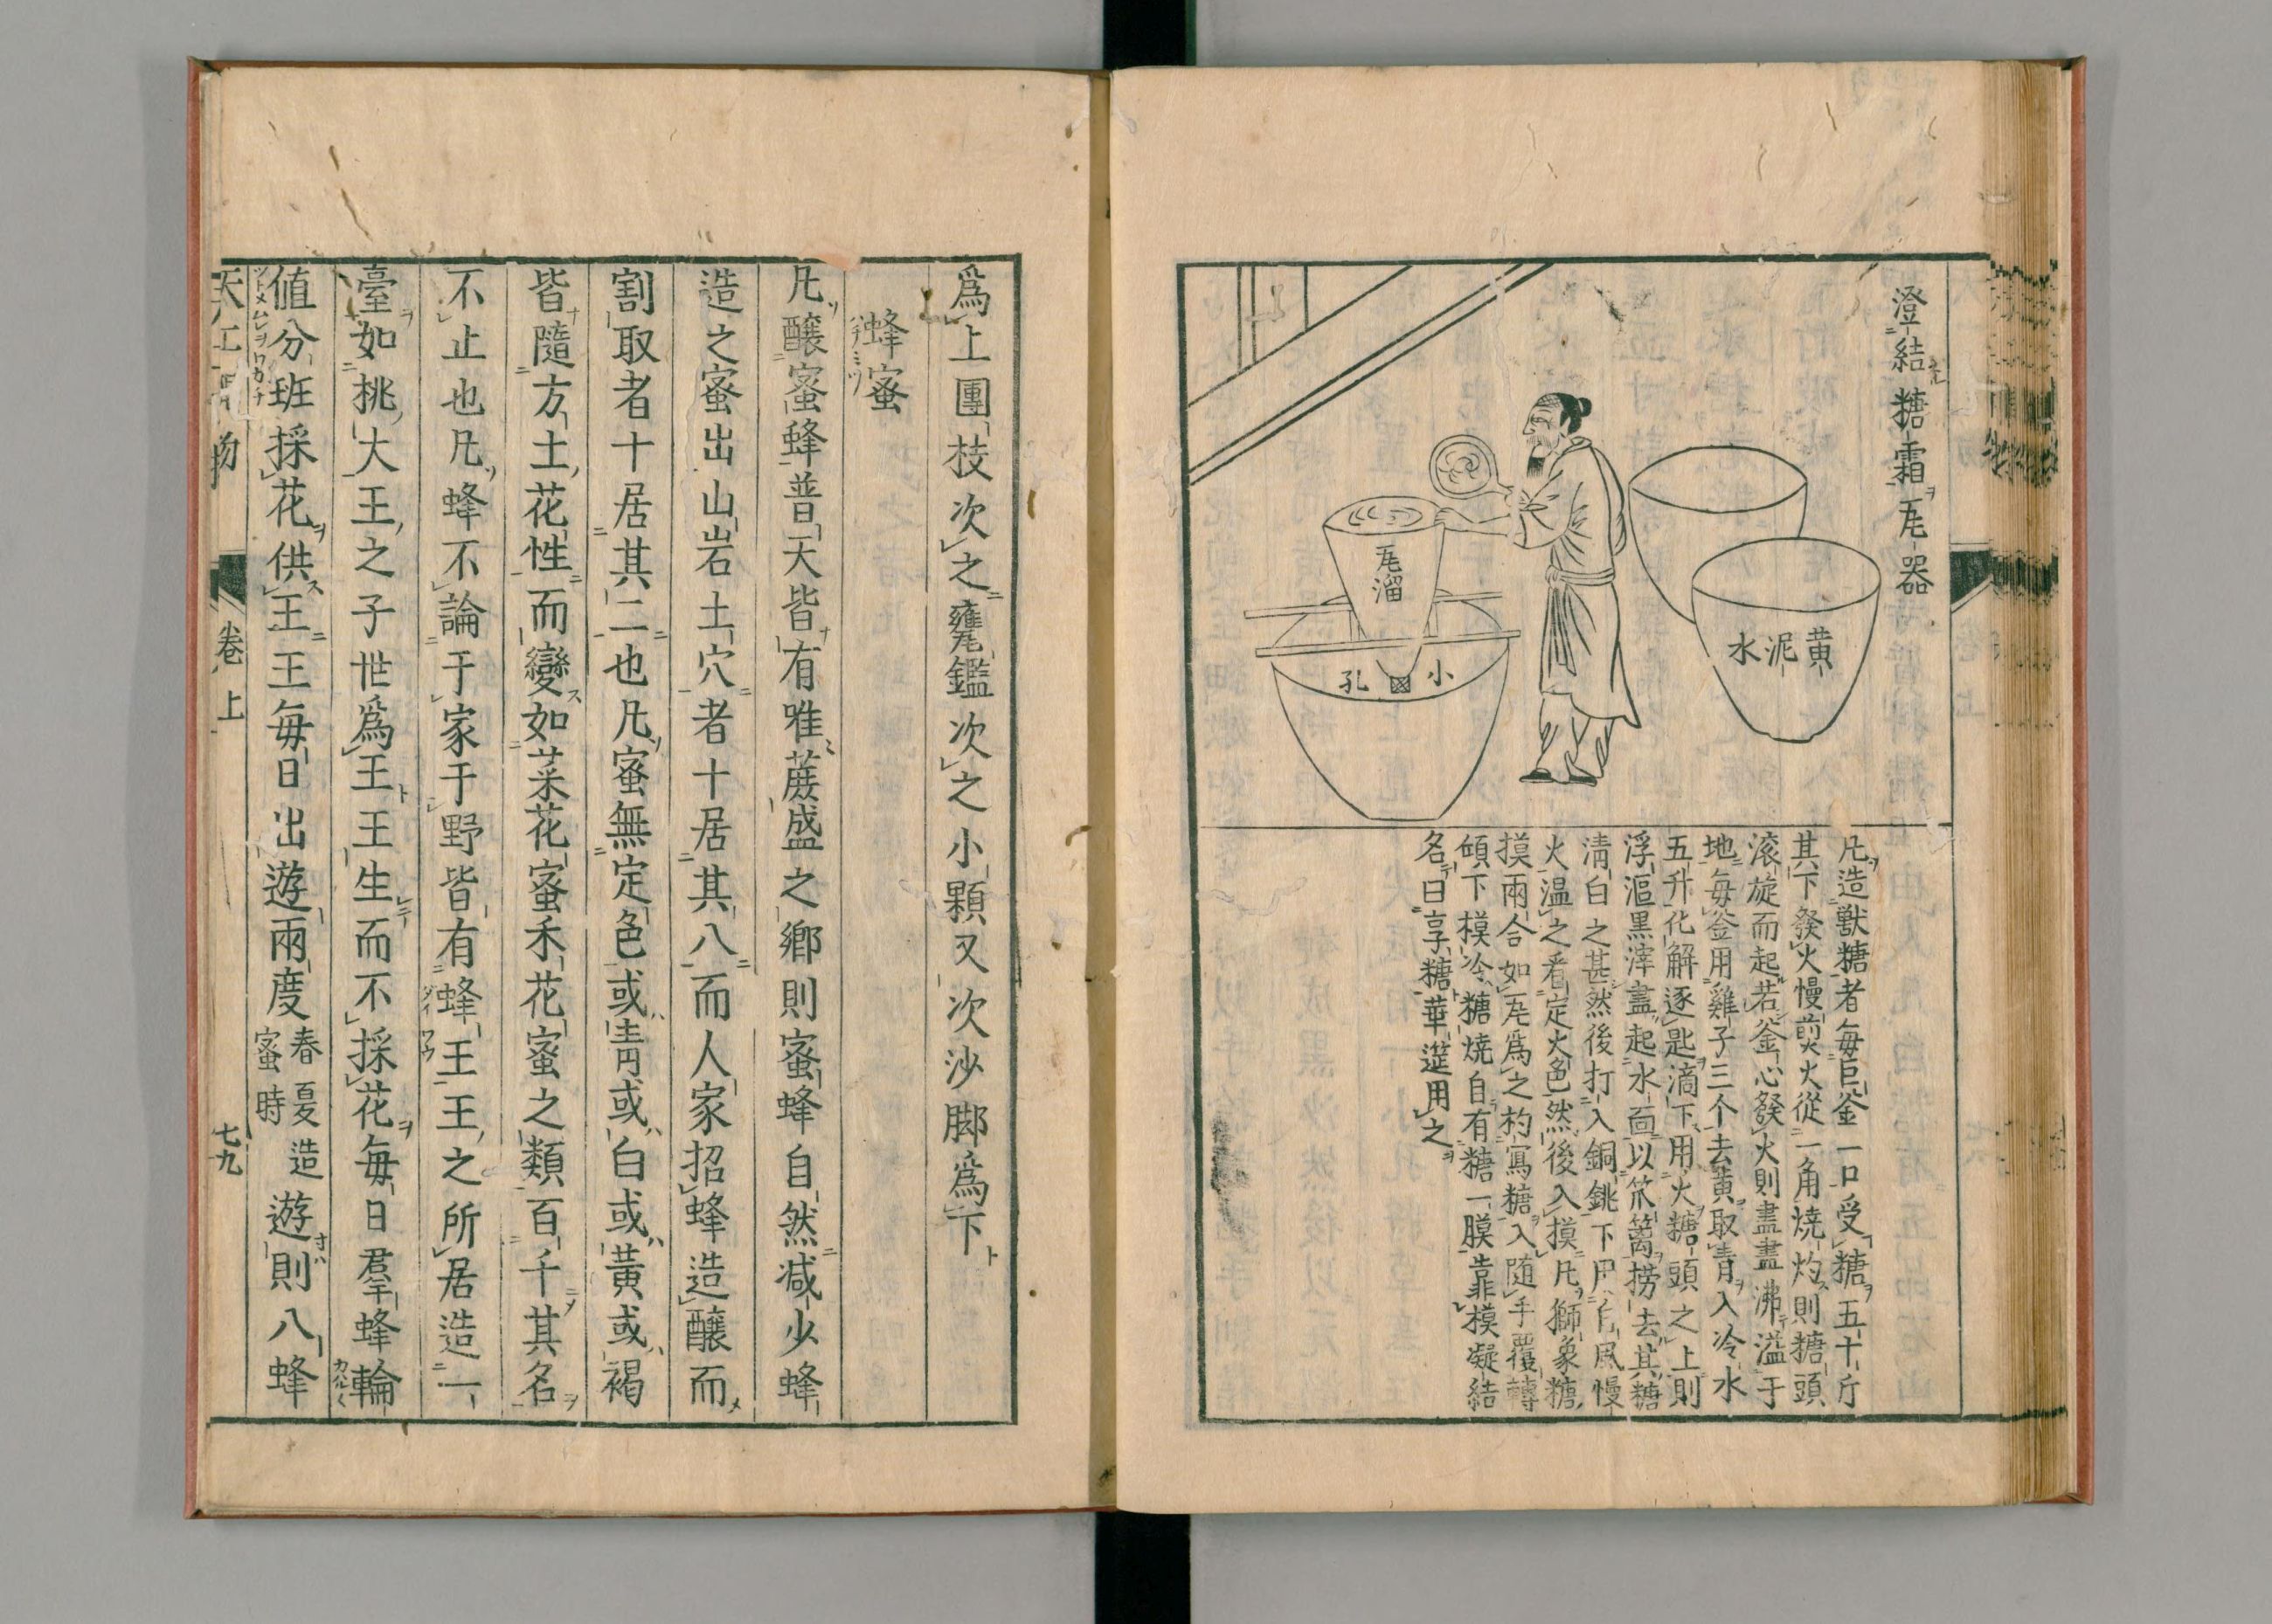 澄結糖霜瓦器
黄泥水
瓦溜
小孔
凡造獸糖者每巨釜一口受糖五十斤
其下發火慢煎火從一角燒灼則糖頭
滚旋而起若釜心發火則盡盡沸溢于
地每釜用雞子三个去黄取青入冷水
五升化解逐匙滴下用火糖頭之上則
浮漚黒滓盡起水面以笊篱撈去其糖
清白之甚然後打入銅銚下用自風慢
火温之看定火色然後入摸凡獅象糖
摸兩合如瓦爲之杓寫糖入随手覆轉
傾下模冷糖燒自有糖一膜靠摸凝結
名曰享糖華筵用之
爲上團枝次之甕鑑次之小顆又次沙脚爲下
蜂蜜
ハチミツ
凡醸蜜蜂普天皆有唯蔗盛之鄉則蜜蜂自然減少蜂
造之蜜出山岩土穴者十居其八而人家招蜂造醸而
割取者十居其二也凡蜜無定色或青或白或黄或褐
皆隨方土花性而變如菜花蜜禾花蜜之類百千其名
不止也凡蜂不論于家于野皆有蜂王王之所居造一
臺如桃大王之子世爲王王生而不採花每日羣蜂輪
値分班採花供王王每日出遊兩度春夏造蜜時遊則八蜂
天工開物
卷上
七九